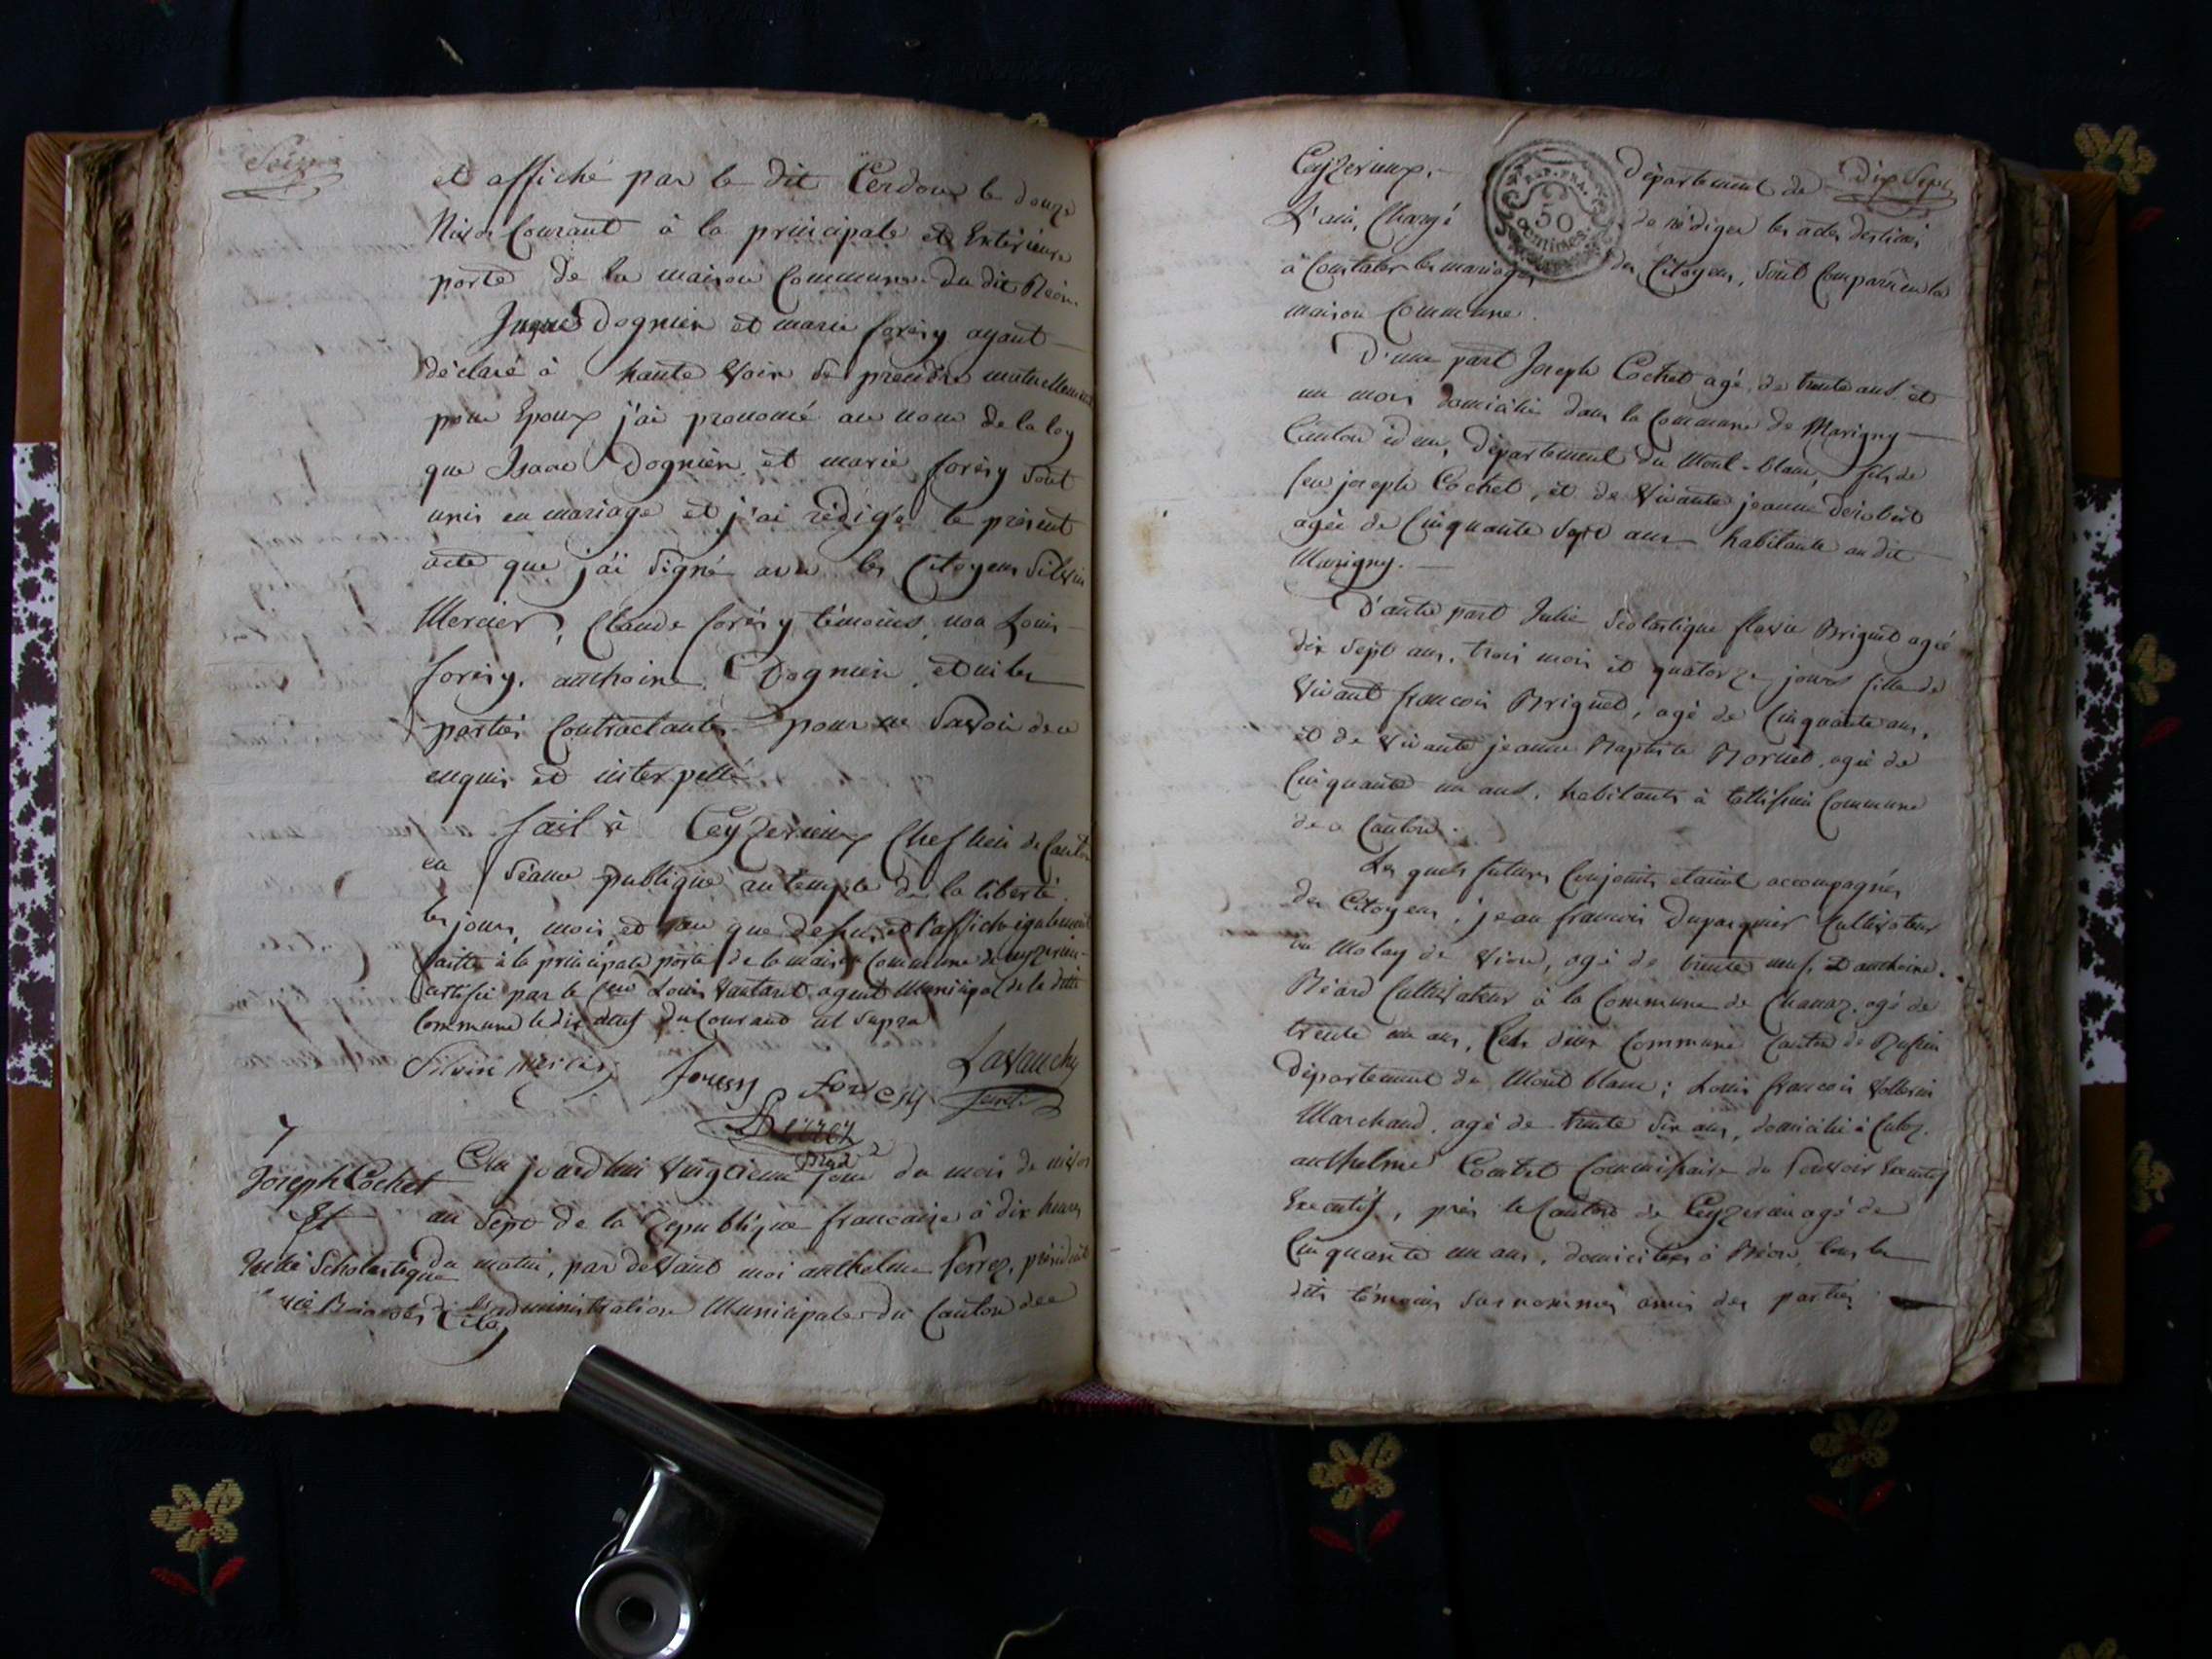 Seize
et affiché par le dit Cerdon le douze
Nivos Courant à la principale et Extérieure
porte de la maison Commune du dit Béon
Dognien et marie foresy ayant
déclaré à haute Voix Se prendre mutuellement
pour Epoux j'ai prononcé au nom de la loy
que Isaac Dognien et marie foresy Sont
unis en mariage et j'ai rédigé le présent
acte que j'ai Signé avec les Citoyens Silvin
Mercier, Claude foresy témoins, non Louis
foresy, anthoine Dognien, et ni les
parties Contractantes pour ne Savoir de ce
enquis et interpellé
fait à Ceyzerieux Chef lieu de Canton
en Séance publique au temple de la liberté
les jour, mois et an que dessus, et l'affiche également
faitte à la principale porte de la maison Commune de ceyzerieu
certifié par le Louis Vautaret agent Municipal de la ditte
Commune le dix neuf du Courant ut Supra
Silvin Mercier foressy foresy Lavauchy
Secret.
Ferrez
presd
7
Joseph Cochet
Et
Julie Scholastique
Cito
Au jourd'hui Vingtieme jour du mois de nivos
an Sept de la République francaise à dix heures
du matin, par deVant moi anthelme ferrez, président
de l'administration Municipale du Canton de
Dix Sept
Ceyzerieux, Département de
REP. FRA.
50
centimes.
L'ain, Chargé de rédiger les actes destinés
à Constater les mariages des Citoyens, Sont Comparu en la
maison Commune.
D'une part Joseph Cochet agé de trente ans et
un mois domicilié dans la Commune de Marigny
Canton idem, Département du Mont-blanc, fils de
feu joseph Cochet, et de Vivante jeanne Derobert
agée de Cinquante Sept ans habitante au dit
Marigny.
D'autre part Julie Scolastique flavie Briguet agée
dix Sept ans, trois mois et quatorze jours fille de
Vivant francois Briguet, agé de Cinquante ans,
et de Vivante jeanne Baptiste Bornet, agée de
Cinquante un ans, habitants à talissieu Commune
de ce Canton.
Les quels futurs Conjoints etaient accompagnés
des Citoyens, jean francois Dupasquier Cultivateur
au Molay de Vion, agé de trente neuf, et anthoine
Béard Cultivateur à la Commune de Chanaz, agé de
trente un ans, Ces deux Commune Canton de Ruffieu
Département du Mont blanc; Louis francois Vollerin
Marchand, agé de trente Six ans, domicilié à Culoz.
anthelme Comtet Commissaire du Pouvoir Executif
Executif, près le Canton de Ceyzerieu agé de
Cinquante un ans, domiciliés à Béon, tous les
dits témoins Sus nommés amis des parties